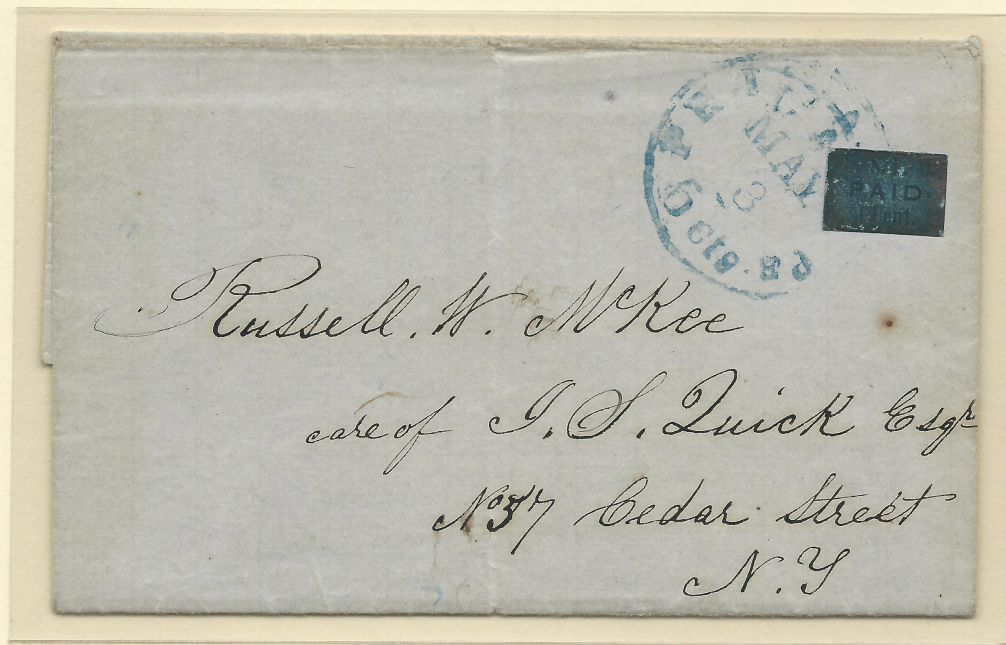 PHILA
MAY
3
6 cts
PAID
Russell. W. McKee
care of J. S. Quick Esqr
No 37 Cedar Street
N. Y